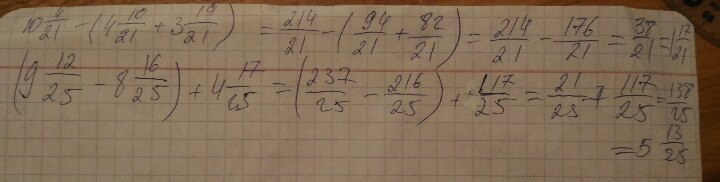 10 4/21 - (4 10/21 + 3 19/21) = 214/21 - (94/21 + 82/21) = 214/21 - 176/21 = 38/21 = 1 17/21
(9 12/25 - 8 16/25) + 4 17/25 = (237/25 - 216/25) + 117/25 = 21/25 + 117/25 = 138/25
= 5 13/25